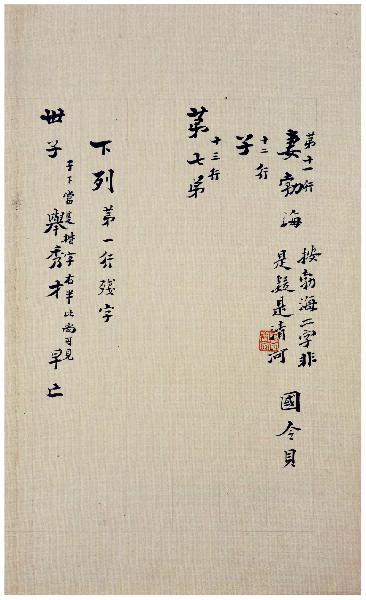 第十一行 妻勃海 按勃海二字非是疑是清河 國令貝
十二行 子
十三行 第七弟
下列 第一行殘字
世子 子下當是楷字右半比尚可見 舉秀才 早亡